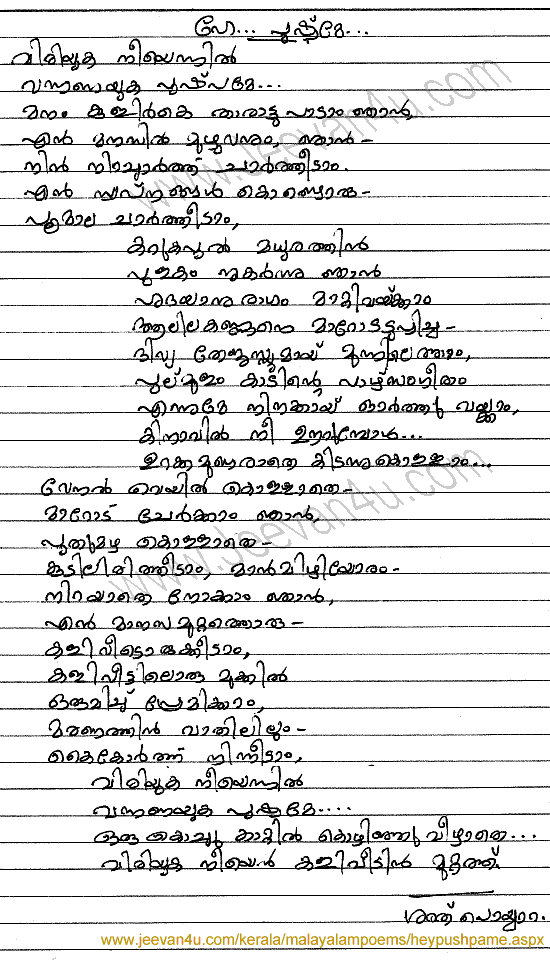 ഹേ... പുഷ്പമേ...
വിരിയുക നീയെന്നിൽ
വന്നണയുക പുഷ്പമേ...
മനം കുളിർകെ താരാട്ടു പാടാം ഞാൻ,
എൻ മനസിൽ മുഴുവനും, ഞാൻ -
നിൻ നിറച്ചാർത്ത് ചാർത്തീടാം.
എൻ സ്വപ്നങ്ങൾ കൊണ്ടൊരു -
പൂമാല ചാർത്തീടാം,
കറുകപുൽ മധുരത്തിൻ
പുളകം നുകർന്നു ഞാൻ
ഹൃദയാനുരാഗം മാറ്റിവയ്ക്കാം
ആലിലകണ്ണനെ മാറോടടുപ്പിച്ച -
ദിവ്യ തേജസ്സുമായ് മുന്നിലെത്താം,
പുല്മുളം കാടിന്റെ പാഴ്സംഗീതം
എന്നുമേ നിനക്കായ് ഓർത്തു വയ്ക്കാം,
കിനാവിൽ നീ ഊറുമ്പോൾ...
ഉറക്കമുണരാതെ കിടന്നുകൊള്ളാം...
വേനൽ വെയിൽ കൊള്ളാതെ -
മാറോട് ചേർക്കാം ഞാൻ,
പുതുമഴ കൊള്ളാതെ -
കൂടിലിരിത്തീടാം, മാൻമിഴിയോരം -
നിറയാതെ നോക്കാം ഞാൻ,
എൻ മാനസമുറ്റത്തൊരു -
കളിവീടൊരുക്കീടാം,
കളിവീട്ടിലൊരു മുക്കിൽ
ഒരുമിച്ച് പ്രേമിക്കാം,
മരണത്തിൻ വാതിലിലും -
കൈകോർത്ത് നിന്നീടാം,
വിരിയുക നീയെന്നിൽ
വന്നണയുക പുഷ്പമേ....
ഒരു കൊച്ചു കാറ്റിൽ കൊഴിഞ്ഞു വീഴാതെ...
വിരിയുക നീയെൻ കളിവീടിൻ മുറ്റത്ത്.
www.jeevan4u.com
www.jeevan4u.com
www.jeevan4u.com/kerala/malayalampoems/heypushpame.aspx